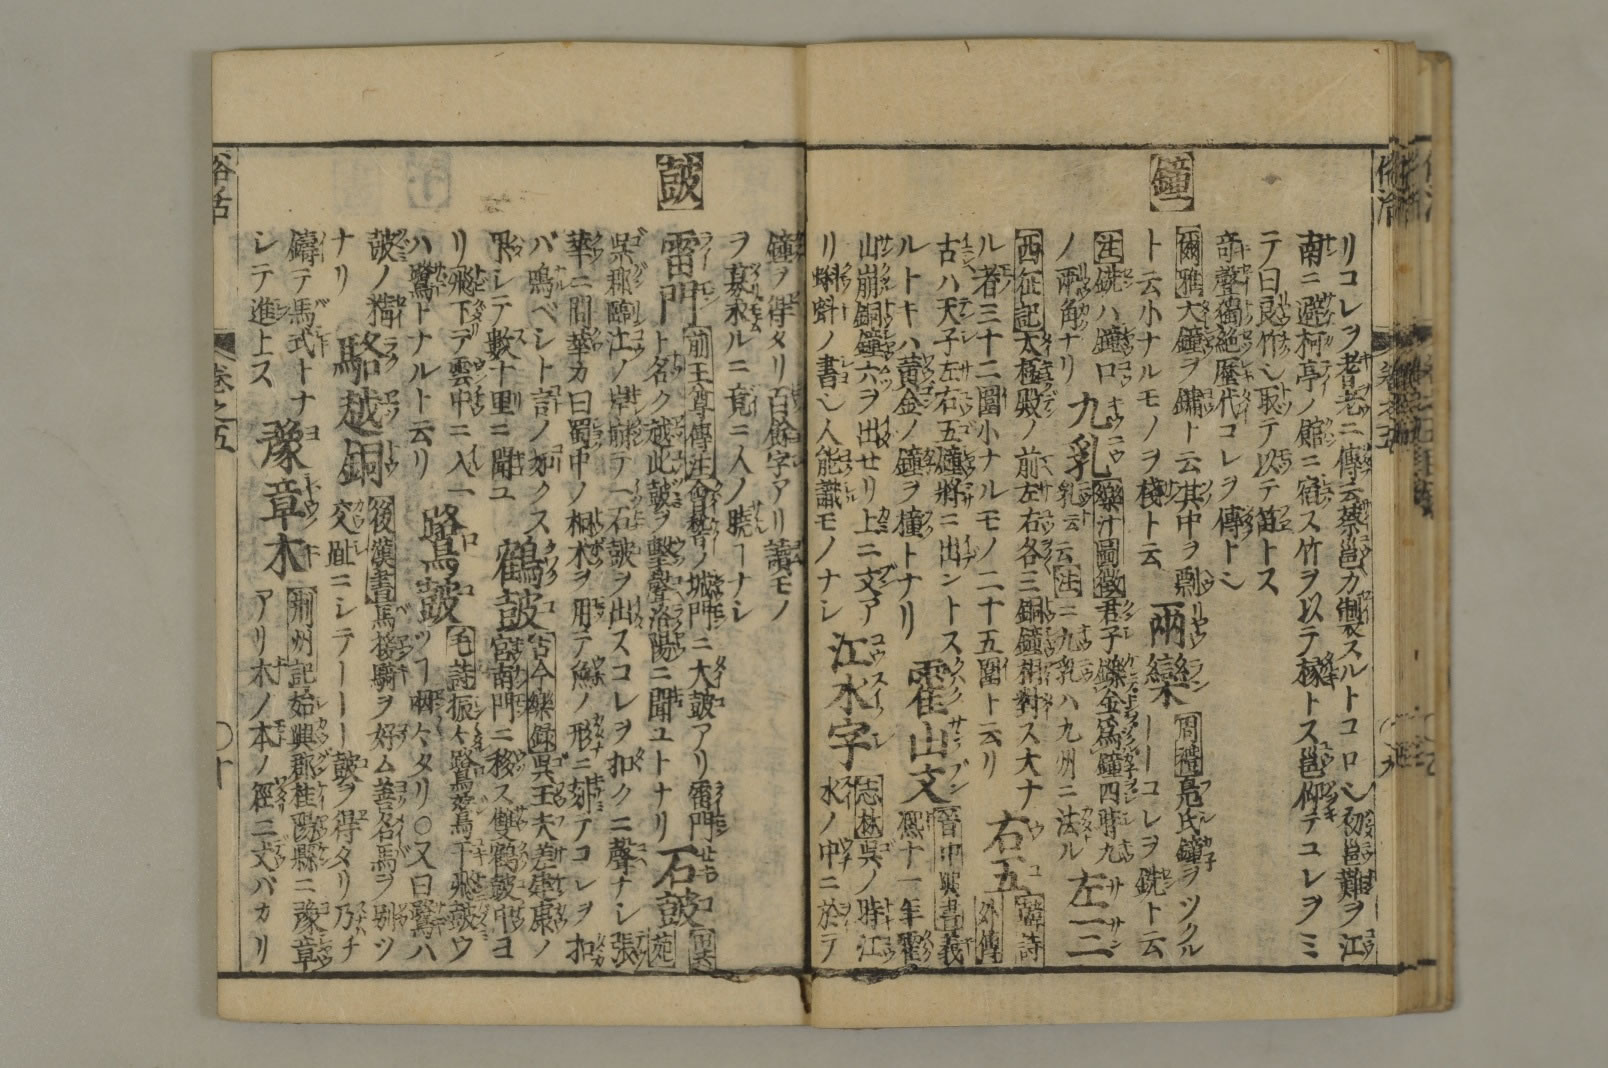 リコレヲ耆老ニ傳云蔡邕カ製スルトコロ也初邕難ヲ江
南ニ避柯亭ノ館ニ宿ス竹ヲ以テ椽トス邕仰テコレヲミ
テ曰良竹也取テ以テ笛トス
奇聲獨絶歷代コレヲ傳ト也
鐘
爾雅大鐘ヲ鏞ト云其中ヲ剽 兩欒 周禮鳧氏鐘ヲツクル
ト云小ナルモノヲ棧ト云 ーーコレヲ銑ト云
注銑ハ鐘口 九乳 樂汁圖徵君子鑠金爲鐘四時九
ノ兩角ナリ 乳云云注ニ九乳ハ九州ニ法ル 左三
西征記太極殿ノ前左右各三銅鐘相對ス大ナ 右五 韓詩
ル者三十二圍小ナルモノ二十五圍ト云リ 外傳
古ハ天子左右五鐘將ニ出ントス 霍山文 晉中興書義
ルトキハ黄金ノ鐘ヲ撞トナリ 熙十一年霍
山崩銅鐘六ヲ出セリ上ニ文ア 江水字 志林呉ノ時江
リ蝌蚪ノ書也人能識モノナシ 水ノ中ニ於テ
鐘ヲ得タリ百餘字アリ讀モノ
ヲ募求ルニ竟ニ人ノ曉ーナシ
鼓
雷門 前王尊傳注會稽ノ城門ニ大鼓アリ雷門 石鼓
ト名ク越此鼓ヲ擊聲洛陽ニ聞ユトナリ
呉郡臨江ノ岸崩テ一石鼓ヲ出スコレヲ扣クニ聲ナシ張
華ニ問華カ曰蜀中ノ桐木ヲ用テ魚ノ形ニ刻テコレヲ扣
バ鳴ベシト言ノ如クス 鶴鼓 古今樂録呉王夫差建康ノ
果シテ數十里ニ聞ユ 宮南門ニ移ス雙鶴鼓中ヨ
リ飛下テ雲中ニ入 鷺鼓 毛詩振々鷺鷺于飛鼓ウ
ハ鷺トナルト云リ ツー咽々タリ○又曰鷺ハ
鼓ノ精 駱越銅 後漢書馬援騎ヲ好ム善名馬ヲ別ツ
ナリ 交趾ニシテーーー鼓ヲ得タリ乃チ
鑄テ馬式トナ 豫章木 荊州記始興郡桂陽縣ニ豫章
シテ進上ス アリ木ノ本ノ徑二丈バカリ
卷之五
○十